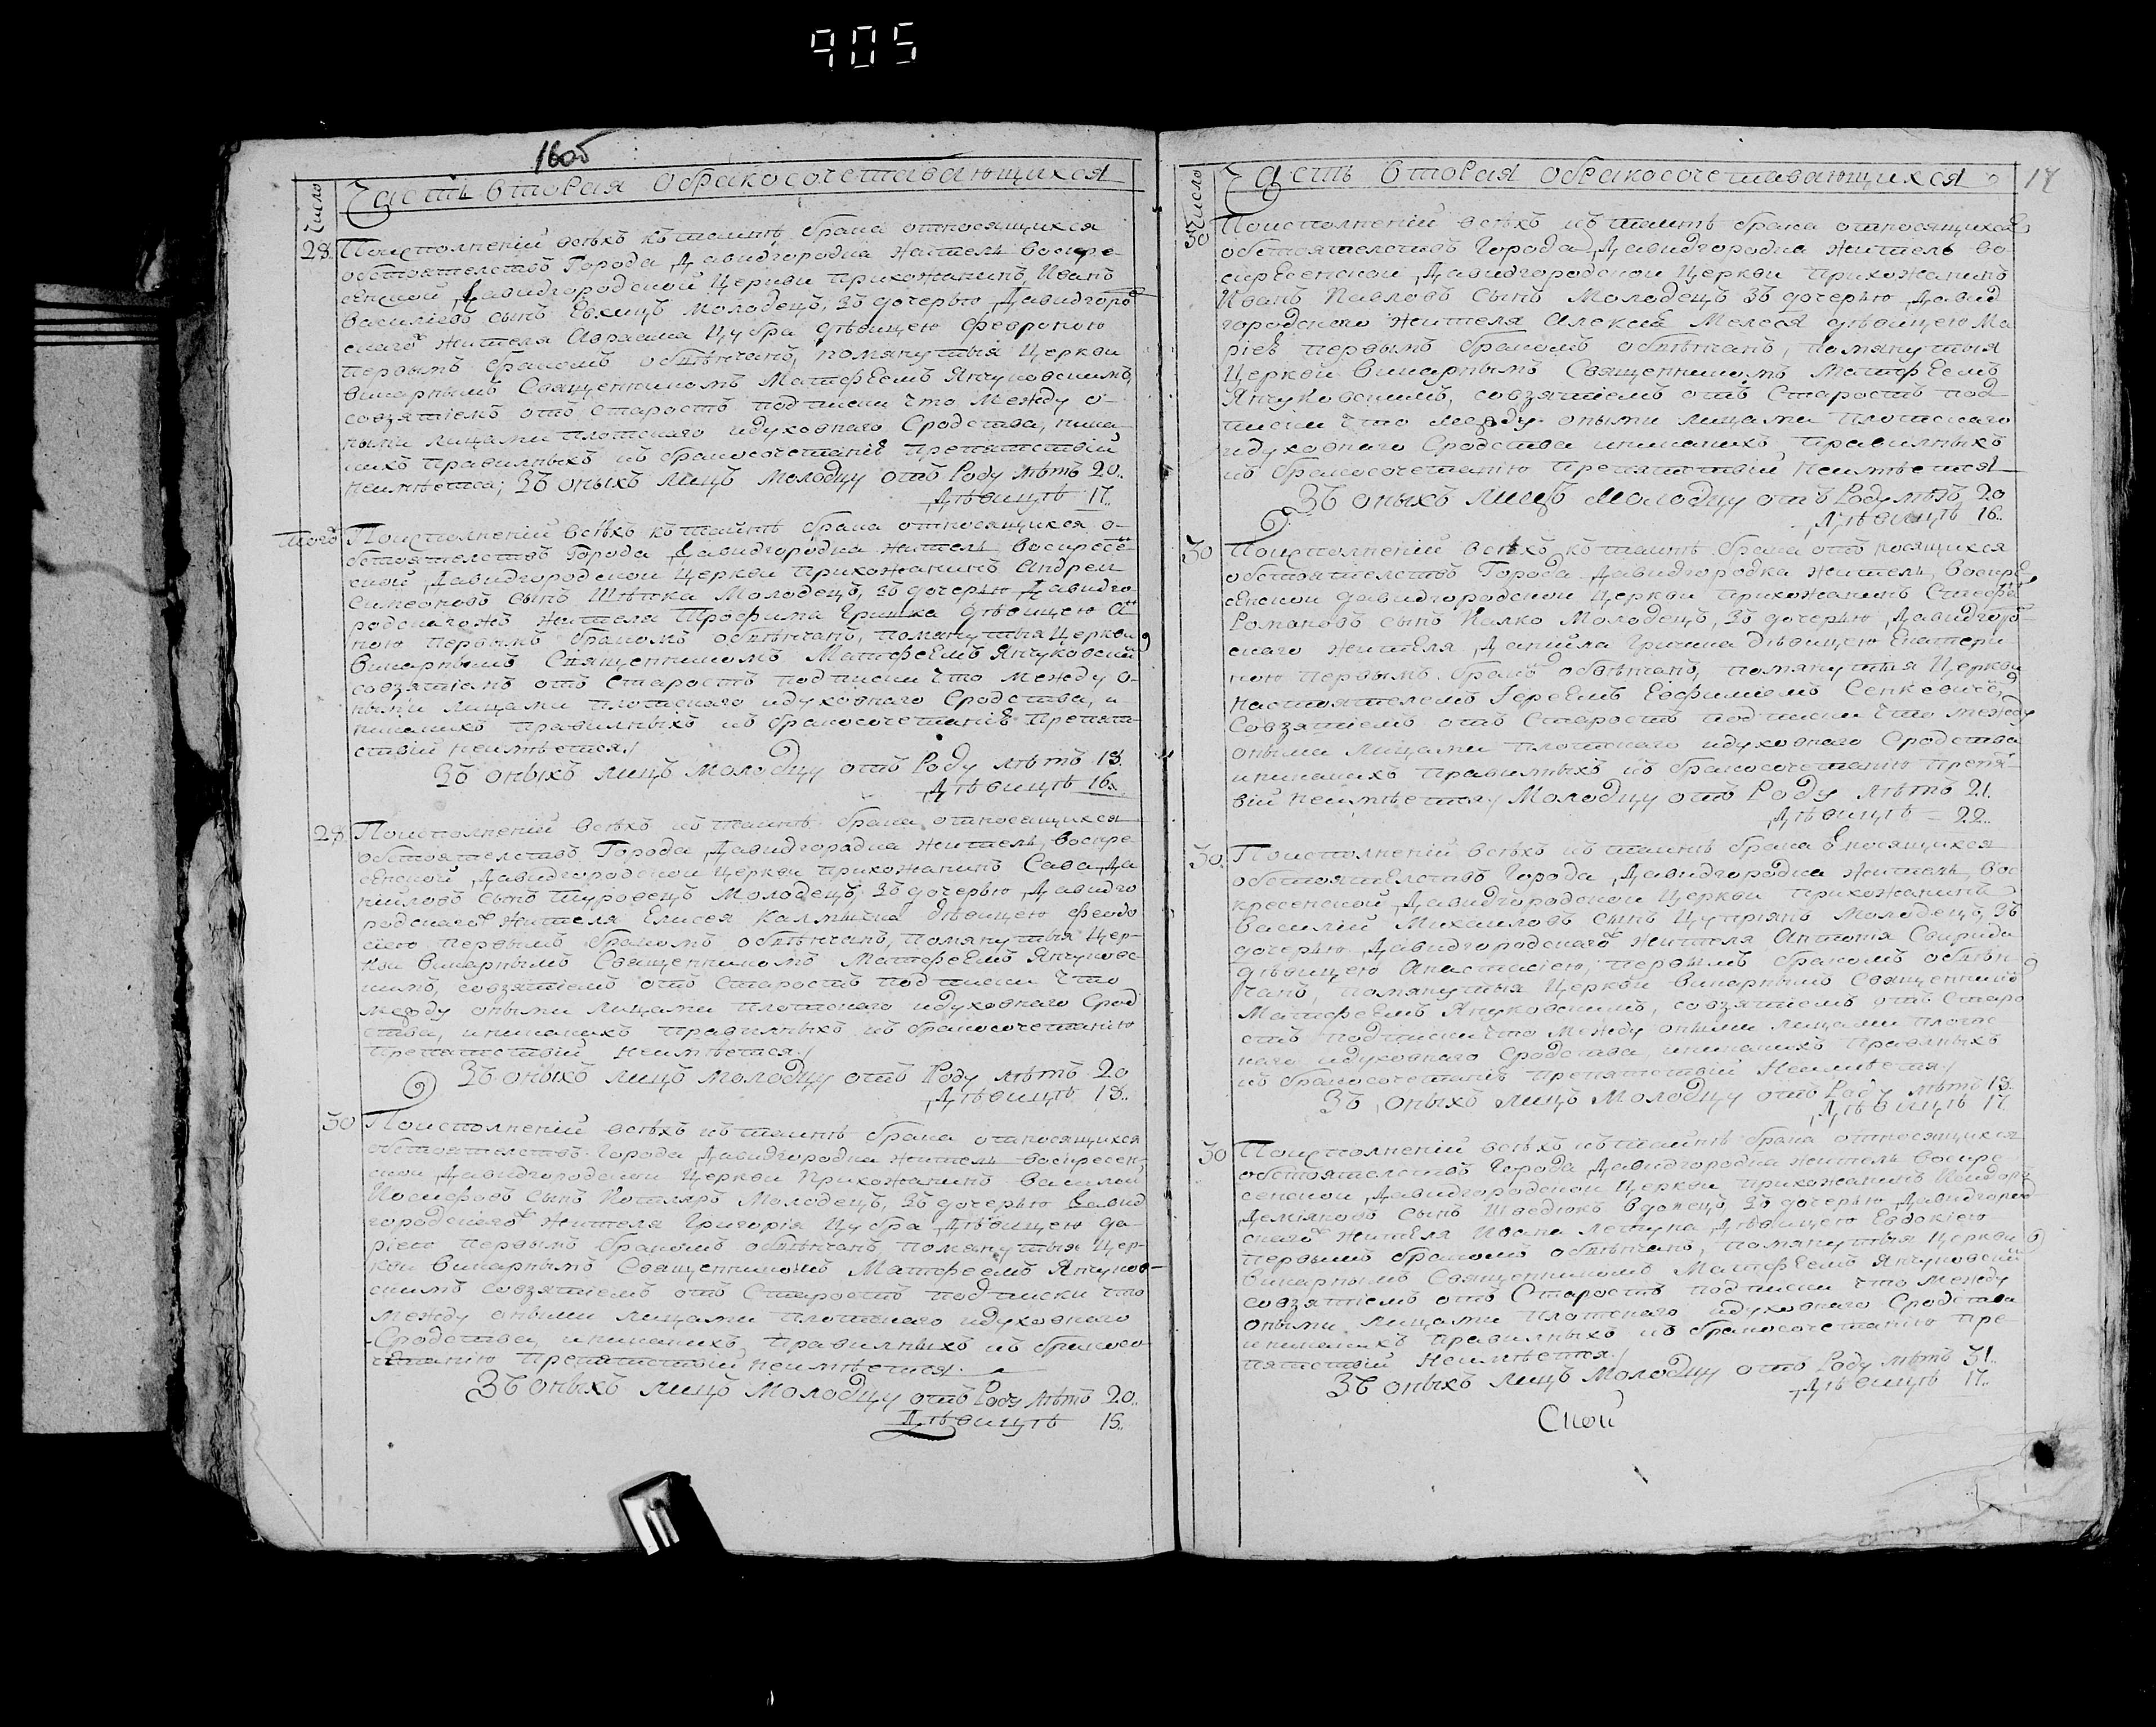 905
16об
Число
Часть вторая обракосочетавающихся
28 Поисполненій всѣхъ къ таинѣ брака относящихся
обстоятелствъ Города Давидгородка Житель Воскре-
сенской Давидгородской Церкви прихожанинъ, Иванъ
Василіевъ сынъ Евхицъ Молодецъ, Зъ дочерью Давидгород
скаго Жителя Авраама Цубра дѣвицею Февроніею
первымъ бракомъ обвѣнчанъ, помянутыя Церкви
Викарнымъ Священникомъ Матфеемъ Янчуковскимъ,
совзятіемъ отъ Старостъ подписки что Между о-
ными лицами плотскаго идуховнаго Сродства, ника
кихъ правилныхъ къ бракосочетаніе препятствій
неимѣется; Зъ оныхъ лицъ Молодцу отъ Роду лѣтъ 20..
Дѣвицѣ 17..
тогожъ Поисполненій всѣхъ къ таинѣ брака относящихся о-
бстоятелствъ Города Давидгородка житель Воскресен
ской Давидгородской Церкви прихожанинъ Андрей
Симеоновъ сынъ Шпѣка Молодецъ, зъ дочерью Давидго-
родскагожъ жителя Трофима Гришка дѣвицею Ан
ною первымъ бракомъ обвѣнчанъ, помянутыя Церкви
Викарнымъ Священникомъ Матфеемъ Янчуковским
совзятіемъ отъ Старостъ подписки что Между о-
ными лицами плотскаго идуховнаго Сродства, и
никакихъ правилныхъ къ бракосочетаніе препят-
ствій неимѣется/
Зъ оныхъ лицъ молодцу отъ Роду лѣтъ 18.
Дѣвицѣ 16..
28 Поисполненій всѣхъ къ таинѣ брака относящихся
обстоятелствъ Города Давидгородка житель, Воскре
сенской Давидгородской Церкви прихожанинъ Сава Да
ніиловъ сынъ Туровецъ Молодецъ, Зъ дочерью Давидго
родскагож Жителя Елисея Калмычка дѣвицею Феодо
сіею первымъ бракомъ обвѣнчанъ, помянутыя Цер-
кви Викарнымъ Священникомъ Матфеемъ Янчуковс
кимъ, совзятіемъ отъ Старостъ подписки что
между оными лицами плотскаго идуховнаго Срод
ства, иникакихъ правилныхъ къ бракосочетанію
препятствій неимѣется/
Зъ оныхъ лицъ молодцу отъ Роду лѣтъ 20
Дѣвицѣ 18..
30 Поисполненій всѣхъ къ таинѣ брака относящихся
обстоятелствъ Города Давидгородка житель Воскресен
ской Давидгородской Церкви Прихожанинъ Василій
Иосифовъ сынъ Котляръ Молодецъ, Зъ дочерью Давид
городскагож жителя Григорія Цубра Дѣвицею Да
ріею первымъ бракомъ обвѣнчанъ, помянутыя Цер-
кви Викарнымъ Священникомъ Матфеемъ Янчуков-
скимъ совзятіемъ отъ Старостъ подписки что
между оными лицами плотскаго идуховнаго
Сродства, иникакихъ, правилныхъ къ бракосо-
четанію препятствій неимѣется.
Зъ оныхъ лицъ молодцу отъ Роду лѣтъ 20..
Дѣвицѣ 15..
Число
Часть вторая обракосочетавающихся 17
30 Поисполненій всѣхъ къ таинѣ брака относящихся
обстоятелствъ Города Давидгородка житель Во
скресенской Давидгородской Церкви прихожанинъ
Иванъ Павловъ Сынъ Молодецъ Зъ дочерью Давид
городскаго жителя Алексѣя Мелеся дѣвицею Ма
ріеѣ первымъ бракомъ обвѣнчанъ, помянутыя
Церкви Викарнымъ Священникомъ Матфеемъ
Янчуковскимъ, совзятіемъ отъ Старостъ под-
писки что между оными лицами плотскаго
идуховнаго Сродства иникакихъ правилныхъ
къ бракосочетанію препятствій неимѣется
Зъ оныхъ лицъ Молодцу отъ Роду лѣтъ 20
Дѣвицѣ 16..
30 Поисполненій всѣхъ къ таинѣ брака относящихся
обстоятелствъ Города Давидгородка житель, Воскре
сенской Давидгородской Церкви прихожанинъ Стефан
Романовъ сынъ Калко Молодецъ, Зъ дочерью Давидгород
скаго жителя Даніила Гричика Дѣвицею Екатери-
ною первымъ браком обвѣнчанъ, помянутыя Церкви
Настоятелемъ Іереемъ Евфиміемъ Сенкевичем,
Совзятіемъ отъ Старостъ подписки что между
оными лицами плотскаго идуховнаго Сродства
иникакихъ правилныхъ къ бракосочетанію препят
вій неимѣется/ Молодцу отъ Роду лѣтъ 21.
Дѣвицѣ — 22..
30. Поисполненій всѣхъ къ таинѣ брака относящихся
обстоятелствъ Города Давидгородка житель, Вос
кресенской Давидгородской Церкви прихожанинъ
Василій Михаиловъ Сынъ Цупріянъ Молодецъ, Зъ
дочерью Давидгородскагож жителя Антонія Свирида
дѣвицею Анастасіею, первымъ бракомъ обвѣн
чанъ, помянутыя Церкви Викарнымъ Священником
Матфеемъ Янчуковскимъ, совзятіемъ отъ Старо
стъ подписки что Между оными лицами плотс
каго идуховнаго Сродства, иникакихъ Правлныхъ
къ бракосочетаніѣ препятствій Неимѣется/
Зъ оныхъ лицъ Молодцу отъ Роду лѣтъ 18.
Дѣвицѣ 17.
30 Поисполненій всѣхъ къ таинѣ брака относящихся
обстоятелствъ Города Давидгородка житель Воскре
сенской Давидгородской Церкви прихожанинъ Исидоръ
Деміяновъ Сынъ Шведюкъ Вдовецъ Зъ дочерью Давидгород
скагож жителя Ивана Летуна Дѣвицею Евдокіею
первымъ бракомъ обвѣнчанъ, помянутыя Церкви
Викарнымъ Священникомъ Матфеемъ Янчуковским
совзятіемъ отъ Старостъ подписки что между
оными лицами плотскаго идуховнаго Сродства
иникакихъ правилныхъ къ бракосочетанію пре-
пятствій Неимѣется/
Зъ оныхъ лицъ Молодцу отъ Роду лѣтъ 31..
Дѣвицѣ 17..
Ской